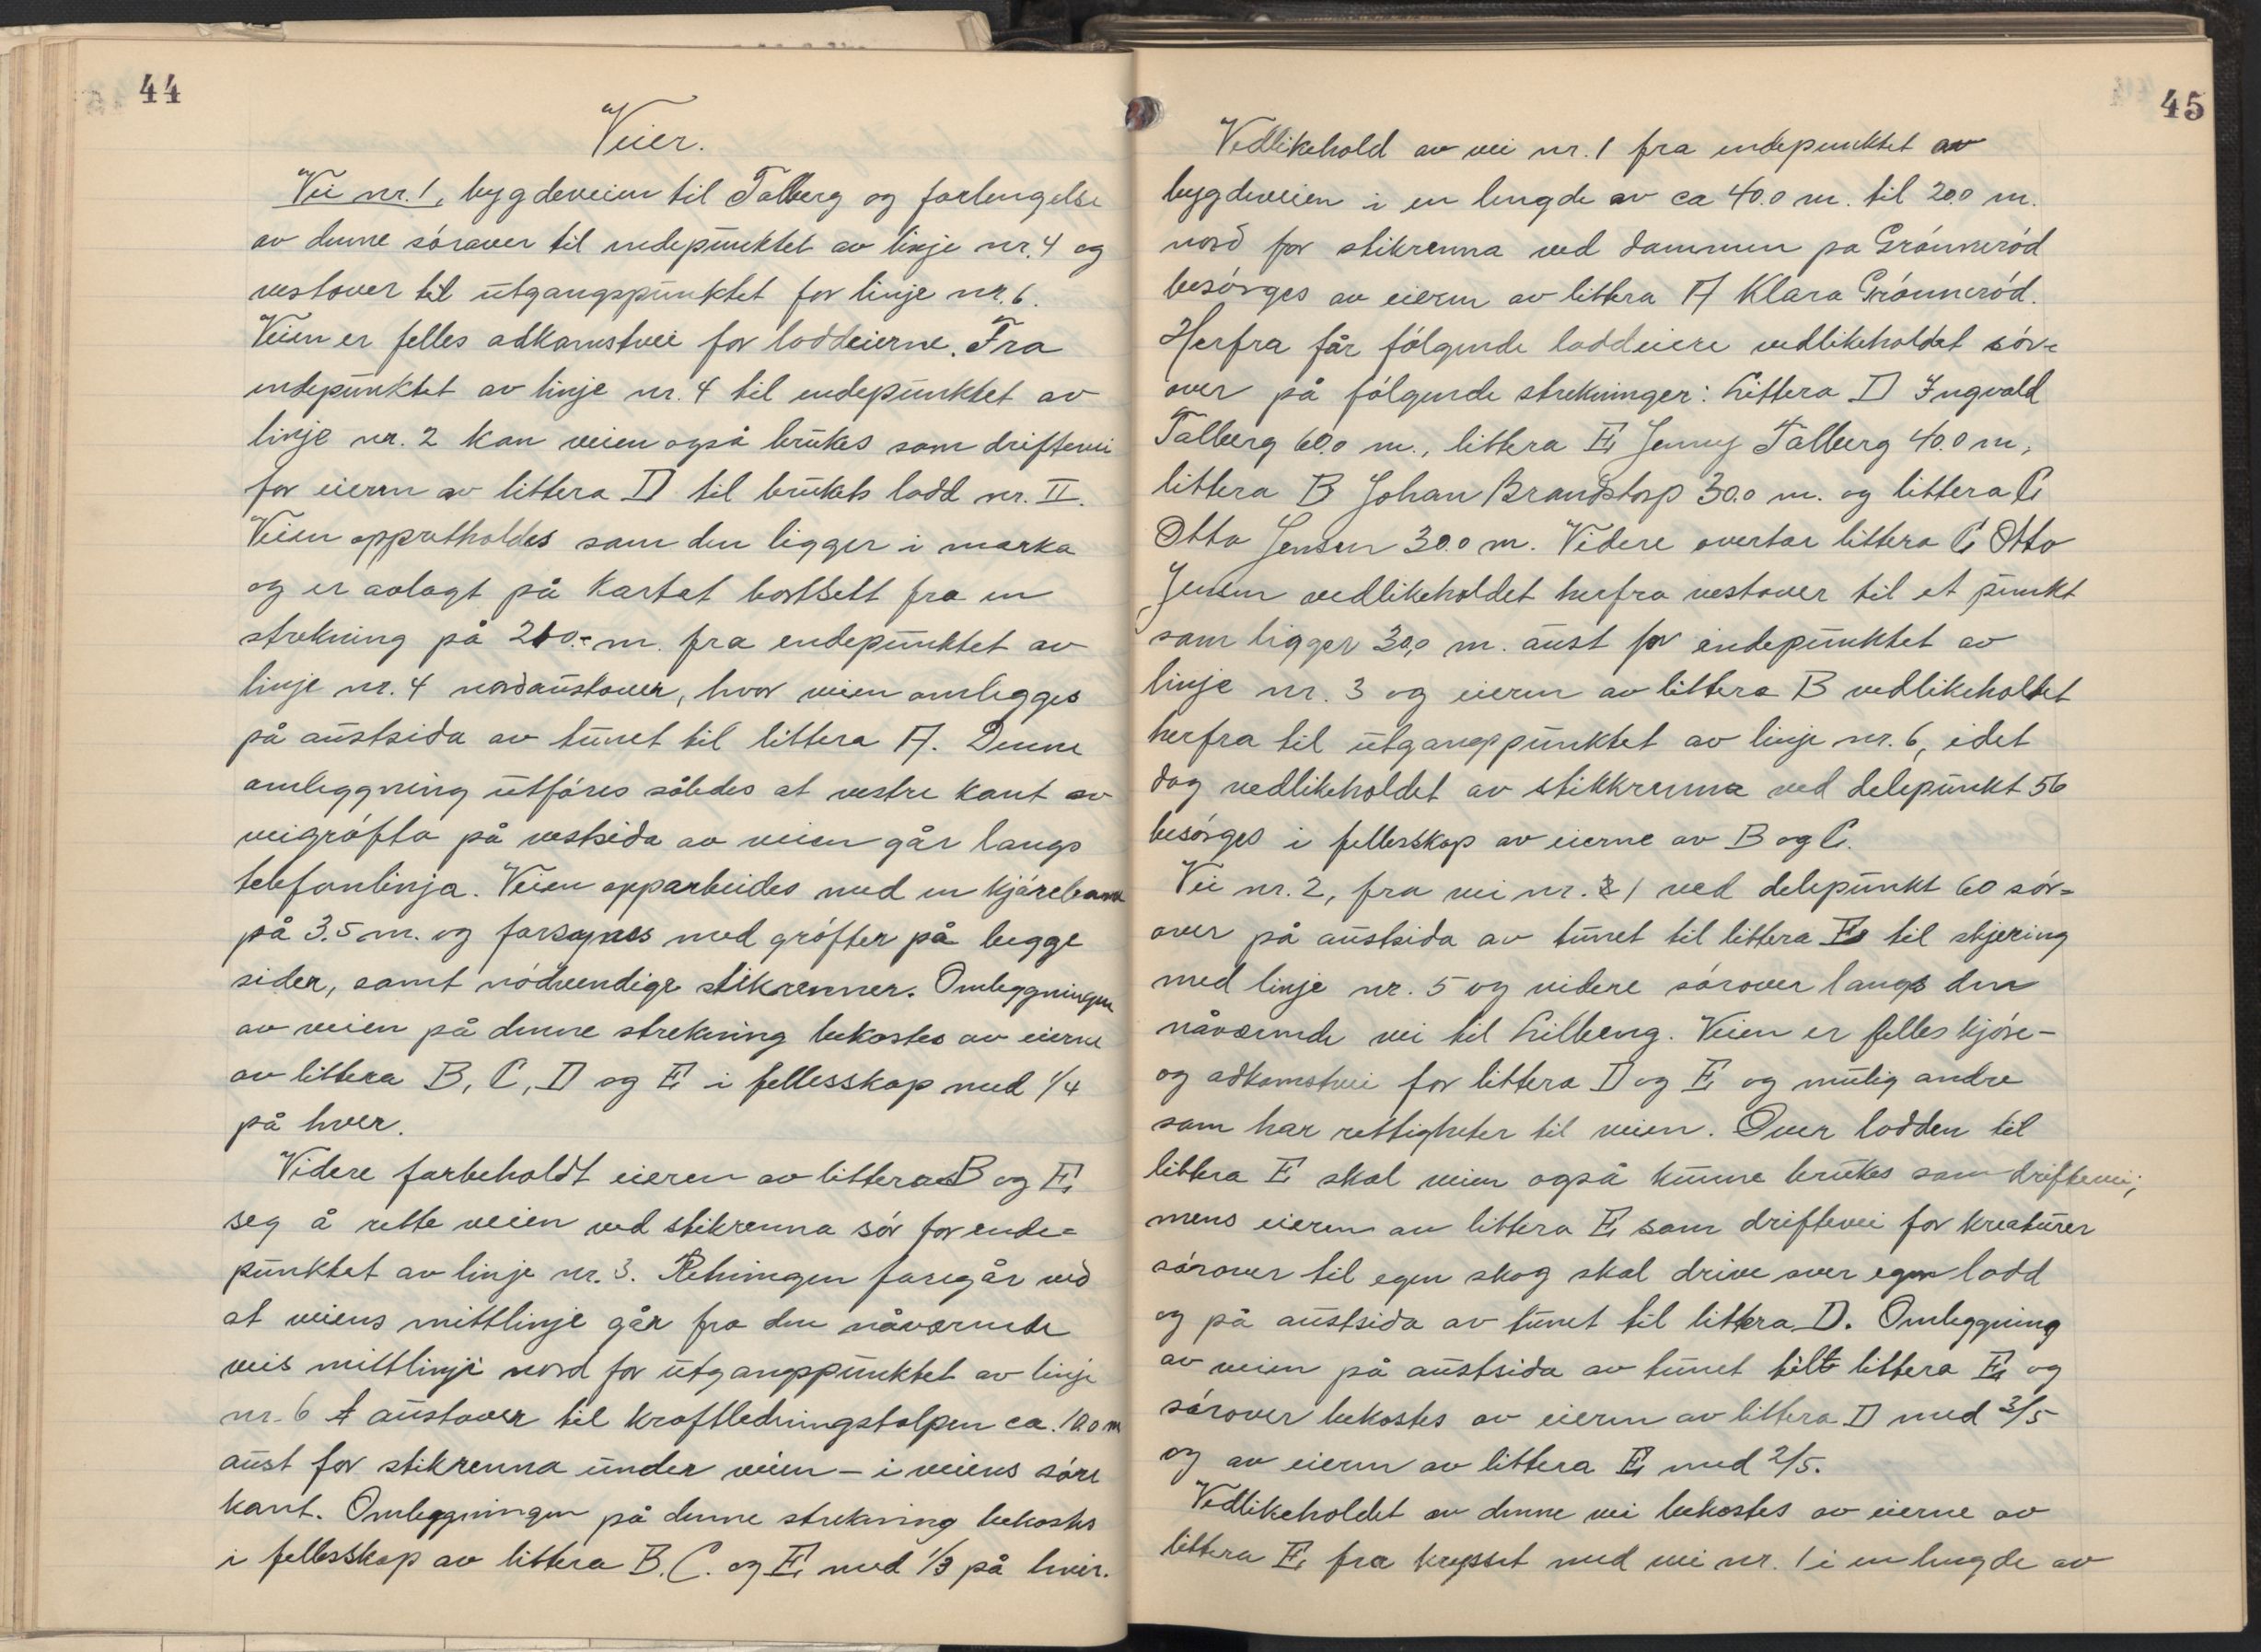 44
Veier.
Vei nr. 1, bygdeveien til Talberg og forlengelse
av denne sórover til endepunktet av linje nr. 4 og
vestover til utgangspunktet for linje nr. 6.
Veien er felles adkomstvei for loddeierne. Fra
endepunktet av linje nr. 4 til endepunktet av
linje nr. 2 kan veien også brukes som driftevei
for eieren av littera D til brukets lodd nr. II.
Veien opprətholdes som den ligger i marka
og er avlagt på kartet bortsett fra en
strekning på 210.- m. fra endepunktet av
linje nr. 4 nordaustover, hvor veien omlegges
på austsida av tunet til littera A. Denne
omleggning utfóres således at vestre kant av
veigrófta på vestsida av veien går langs
telefonlinja. Veien opparbeides med en kjórebane
på 3.5 m. og forsynes med grófter på begge
sider, samt nódvendige stikrenner. Omleggningen
av veien på denne strekning bekostes av eierne
av littera B, C, D og E i fellesskap med 1/4
på hver.
Videre forbeholdt eieren av littera B og E
seg å rette veien ved stikrenna sór for ende=
punktet av linje nr. 3. Retningen foregår ved
at veiens mittlinje går fra den nåværende
veis mittlinje nord for utgangspunktet av linje
nr. 6 austover til kraftledningstolpen ca. 10.0 m
aust for stikrenna under veien – i veiens sóre
kant. Omleggningen på denne strekning bekostes
i fellesskap av littera B. C. og E med 1/3 på hver.
45
Vedlikehold av vei nr. 1 fra endepunktet av
bygdeveien i en lengde av ca 40.0 m. til 20.0 m.
nord for stikrenna ved dammen pa Grónneród
besórges av eieren av littera A Klara Grónneród.
Herfra får fólgende loddeiere vedlikeholdet sór=
over på fólgende strekninger: Littera D Ingvald
Talberg 60.0 m., littera E Jenny Talberg 40.0 m,
littera B Johan Brandstorp 30.0 m. og littera C
Otto Jensen 30.0 m. Videre overtar littera C Otto
Jensen vedlikeholdet herfra vestover til et punkt
som ligger 30,0 m. aust for endepunktet av
linje nr. 3 og eieren av littera B vedlikeholdet
herfra til utgangspunktet av linje nr. 6, idet
dog vedlikeholdet av stikkrenna ved delepunkt 56
besórges i fellesskap av eierne av B og C.
Vei nr. 2, fra vei nr. 1 ved delepunkt 60 sór=
over på austsida av tunet til littera E til skjering
med linje nr. 5 og videre sórover langs den
nåværende vei til Lilleeng. Veien er felles kjóre-
og adkomstvei for littera D og E og mulig andre
som har rettigheter til veien. Over lodden til
littera E skal veien også kunne brukes som driftevei,
mens eieren av littera E som driftevei for kreaturer
sórover til egen skog skal drive over egen lodd
og på austsida av tunet til littera D. Omleggning
av veien på austsida av tunet til littera E og
sórover bekostes av eieren av littera D med 3/5
og av eieren av littera E med 2/5.
Vedlikeholdet av denne vei bekostes av eierne av
littera E fra krysset med vei nr. 1 i en lengde av